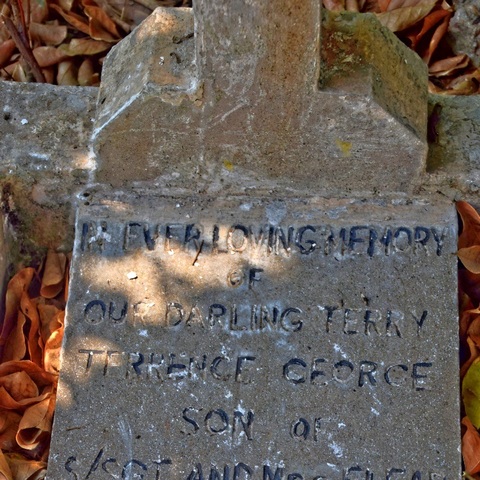 IN EVER LOVING MEMORY
OF
OUR DARLING TERRY
TERRENCE GEORGE
SON OF
S/SGT AND MRS